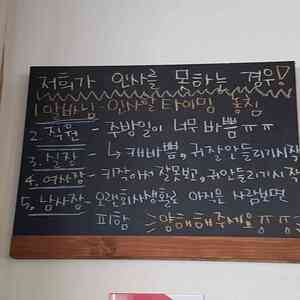 저희가 인사를 못하는 경우!
1. 알바님 - 인사할 타이밍 놓침
2. 직원 - 주방일이 너무 바쁨 ㅠㅠ
3. 실장 - ↳ 걔바쁨, 귀잘안들리기시작
4. 여사장 - 키작아서 잘못보고, 귀안들리기시작
5. 남사장 - 오랜회사생활로 아직은 사람보면
피함
양해해주세요 ㅠㅠ